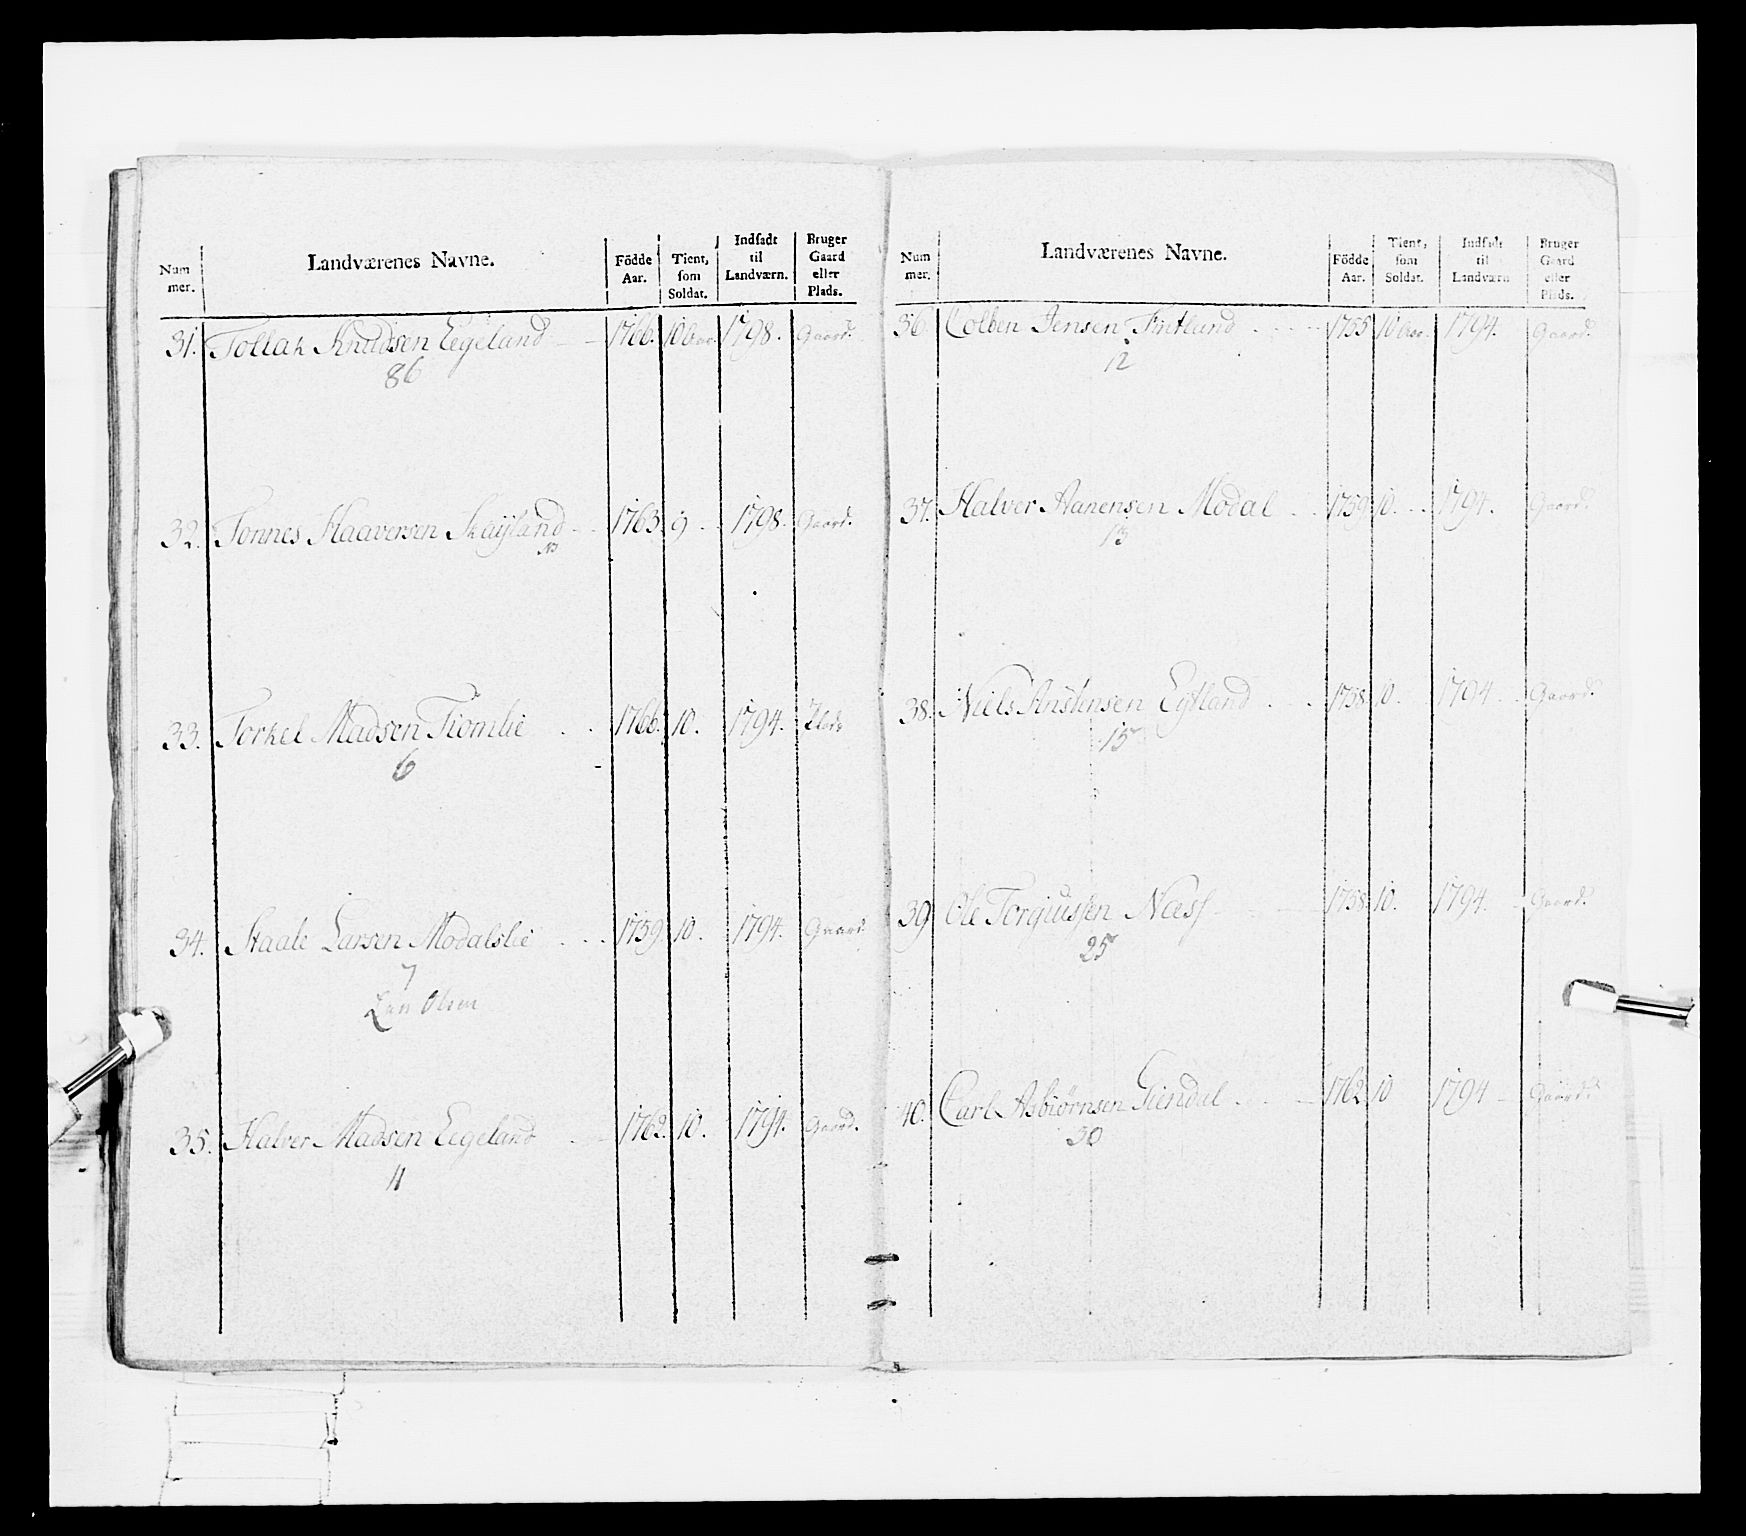 Num mer. Landværenes Navne. Födde Aar. Tient, som Soldat. Indsadt til Landværn. Bruger Gaard eller Plads.
31. Tollak Knudsen Eegeland 1766. 10 Aar. 1798. Gaard.
86
32. Tonnes Haaversen 1763. 9 1798. Gaard.
33. Torkel Madsen Tiomlie 1766. 10. 1794. Plads
6
34. Staale Larsen Modalslie 1759 10. 1794. Gaard
7
Lars Olsen
35. Halver Madsen Eegeland 1762. 10. 1794. Gaard.
11
Num mer. Landværenes Navne. Födde Aar. Tient, som Soldat. Indsadt til Landværn Bruger Gaard eller Plads.
36. Colben Jensen Fintland 1755 10 Aar. 1794. Gaard.
12
37. Halver Aanensen Modal 1759 10. 1794. Gaard.
13
38. Niels Anstensen Eftland 1758 10. 1794. Gaard.
15
39 Ole Torquissen Næss 1758 10. 1794. Gaard.
25
40. Carl Asbiörnsen Giendal 1762 10 1794 Gaard.
30